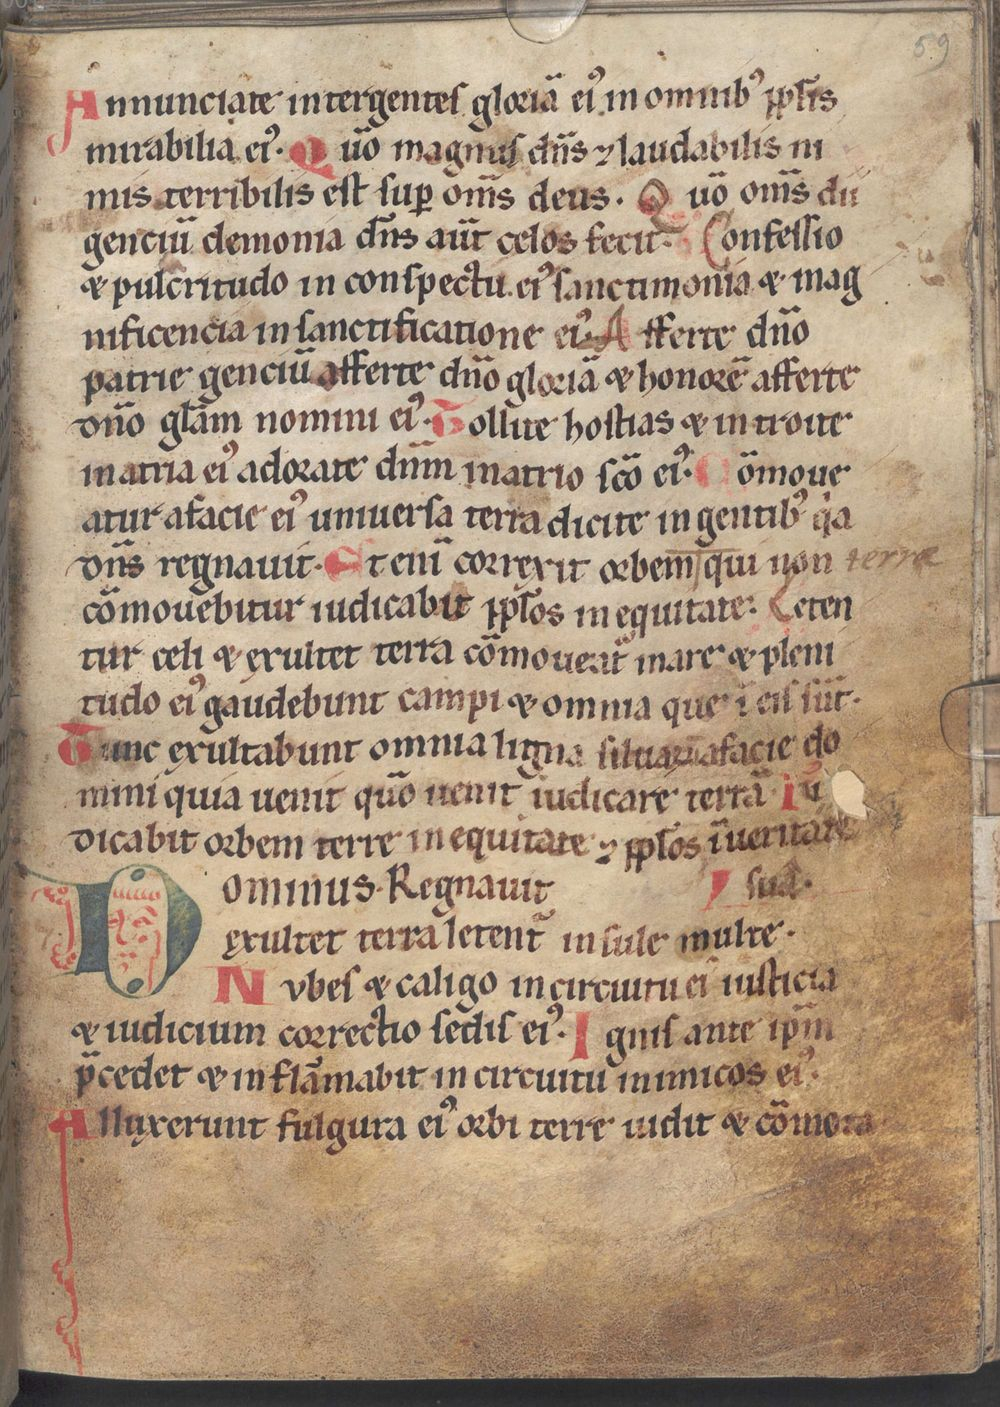 59
Annunciate inter gentes gloriã ei⁹ in omnib⁹ pp̃lis
mirabilia ei⁹. Quõ magnus dñs ⁊ laudabilis ni
mis terribilis est sup om̃s deus. Quõ om̃s dii
genciũ demonia dñs aut̃ celos fecit. Confessio
& pulcritudo in conspectu ei⁹ sanctimonia & mag
nificencia in sanctificatione ei⁹. Afferte dño
patrie genciũ afferte dño gloriã & honorẽ afferte
dño glãm nomini ei⁹. Tollite hostias & introite
in atria ei⁹ adorate dñm in atrio sc̃o ei⁹. Cõmoue
atur a facie ei⁹ uniuersa terra dicite in gentib⁹ q̃a
dñs regnauit. Et enĩ correxit orbem qui non terræ
cõmouebitur iudicabit pp̃los in equitate. Leten
tur celi & exultet terra cõmoueat̃ mare & pleni
tudo ei⁹ gaudebunt campi & omnia que ĩ eis sũt.
Tunc exultabunt omnia ligna siluarũ a facie do
mini quia uenit quõ uenit iudicare terrã Iu
dicabit orbem terre in equitate ⁊ pp̃los ĩ ueritate
Dominus Regnauit suã.
exultet terra letent̃ insule multe.
Nvbes & caligo in circuitu ei⁹ iusticia
& iudicium correctio sedis ei⁹. Ignis ante ip̃m
p̃cedet & inflãmabit in circuitu inimicos ei⁹.
Alluxerunt fulgura ei⁹ orbi terre uidit & cõmota